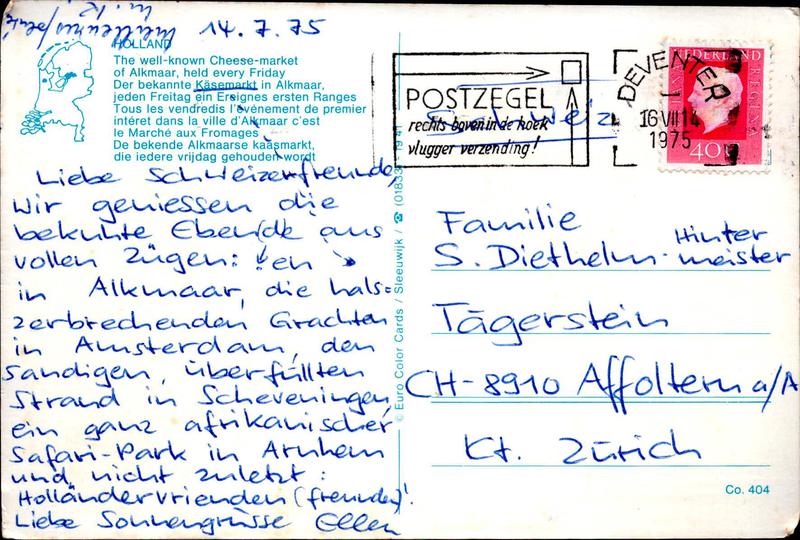 14.7.75
HOLLAND
The well-known Cheese-market
of Alkmaar, held every Friday
Der bekannte Käsemarkt in Alkmaar,
jeden Freitag ein Ereignis ersten Ranges
Tous les vendredis l'événement de premier
intéret dans la ville d'Alkmaar c'est
le Marché aux Fromages
De bekende Alkmaarse kaasmarkt,
die iedere vrijdag gehouden wordt
Liebe Schweizerfreunde,
wir geniessen die
bekuhte Ebende aus
vollen Zügen:
in Alkmaar, die hals=
zerbrechenden Grachten
in Amsterdam, den
sandigen, überfüllten
Strand in Scheveningen,
ein ganz afrikanischer
Safari-Park in Arnhem
und nicht zuletzt:
Holländervrienden (freunden)!
Liebe Sonnengrüsse Ellen
© Euro Color Cards / Sleeuwijk / ☎ (01833) 1941
POSTZEGEL
rechts boven in de hoek
vlugger verzending!
DEVENTER
16 VII 14
1975
NEDERLAND
40
Schweiz
Familie
S. Diethelm-Hinter
meister
Tägerstein
CH-8910 Affoltern a/A
Kt. Zürich
Co. 404